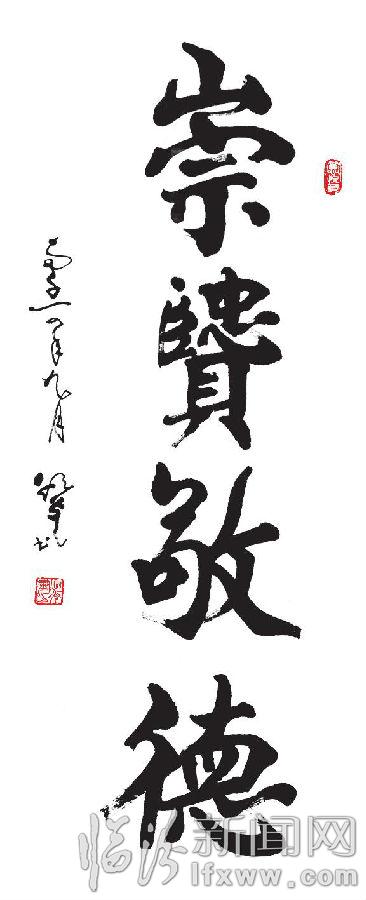 崇贒敬德
一四年九月
临汾新闻网
lfxww.com